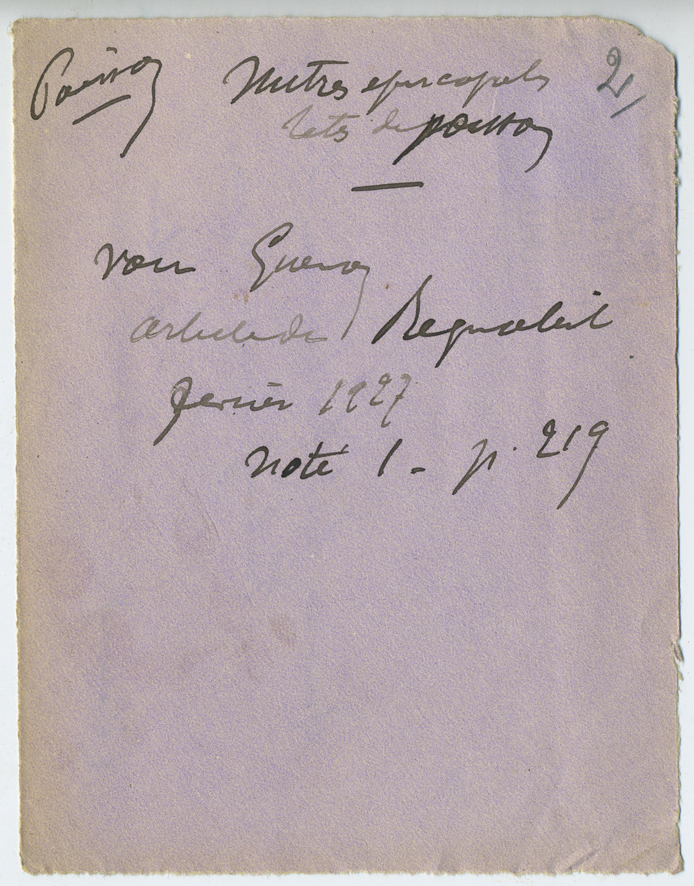 Poisson
Mitres episcopales 2/
têts de poisson
voir Guenon
article de Regnabit
fevrier 1927
note 1 - p. 219